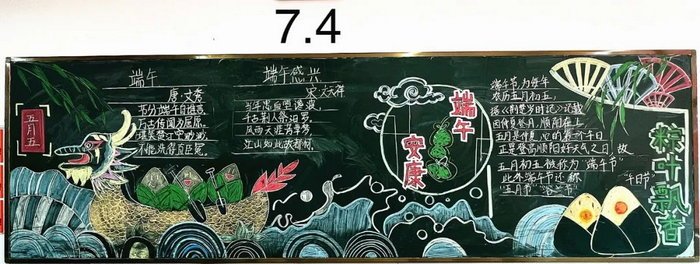 7.4
五月五
端午
唐·文秀
节分端午自谁言
万古传闻为屈原
不能洗得直臣冤
端午感兴
宋 文天祥
当年忠血堕谗波
千古荆人祭汨罗
风雨天涯芳草梦
江山如此故都何
端午
安康
端午节,为每年
农历五月初五。
据《荆楚岁时记》记载
因仲夏登高,顺阳在上,
五月是仲夏,它的第一个午日
正是登高顺阳好天气之日,故
五月初五被称为“端午节”
此外端午节还称“午日节
五月节”
粽叶飘香